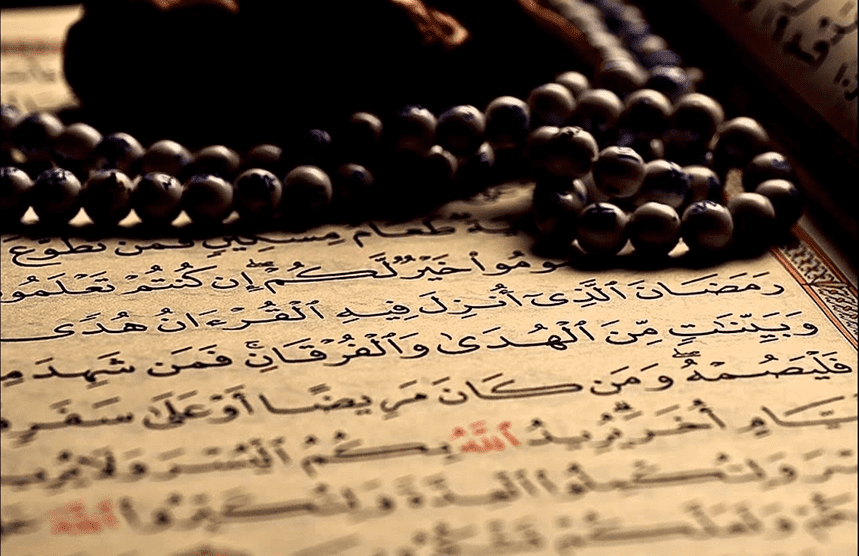 طَعَامُ مِسْكِينٍ فَمَن تَطَوَّعَ
خَيْرٌ لَّكُمْ إِن كُنتُمْ تَعْلَمُو
رَمَضَانَ ٱلَّذِىٓ أُنزِلَ فِيهِ ٱلْقُرْءَانُ هُدًى
وَبَيِّنَٰتٍ مِّنَ ٱلْهُدَىٰ وَٱلْفُرْقَانِ ۚ فَمَن شَهِدَ مِ
فَلْيَصُمْهُ ۖ وَمَن كَانَ مَرِيضًا أَوْ عَلَىٰ سَفَرٍ
يَّامٍ أُخَرَ ۗ يُرِيدُ ٱللَّهُ بِكُمُ ٱلْيُسْرَ وَلَا يُرِيد
وَلِتُكْمِلُوا۟ ٱلْعِدَّةَ وَلِتُكَبِّرُوا۟ ٱللَّهَ
وَلَعَلَّكُمْ